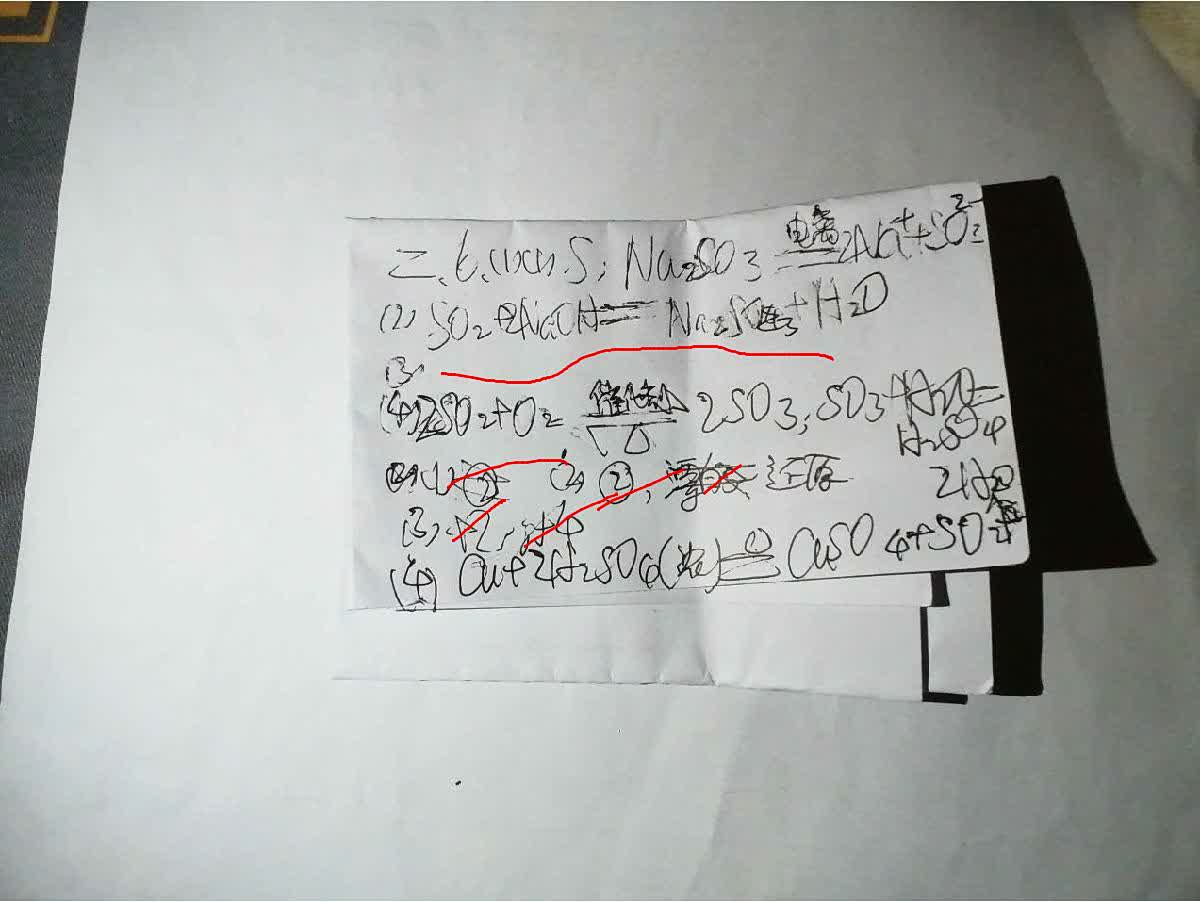 二、6.(1)(1) S; Na₂SO₃ 电离═ 2Na⁺+SO₃²⁻
(2) SO₂+2NaOH═Na₂SO₃+H₂O
(3)
(4) 2SO₂+O₂ 催化剂/△ 2SO₃; SO₃+H₂O=
H₂SO₄
(1) ② (2) ②, 还原
(3)
2H₂O
(4) Cu+2H₂SO₄(浓)═CuSO₄+SO₂↑+